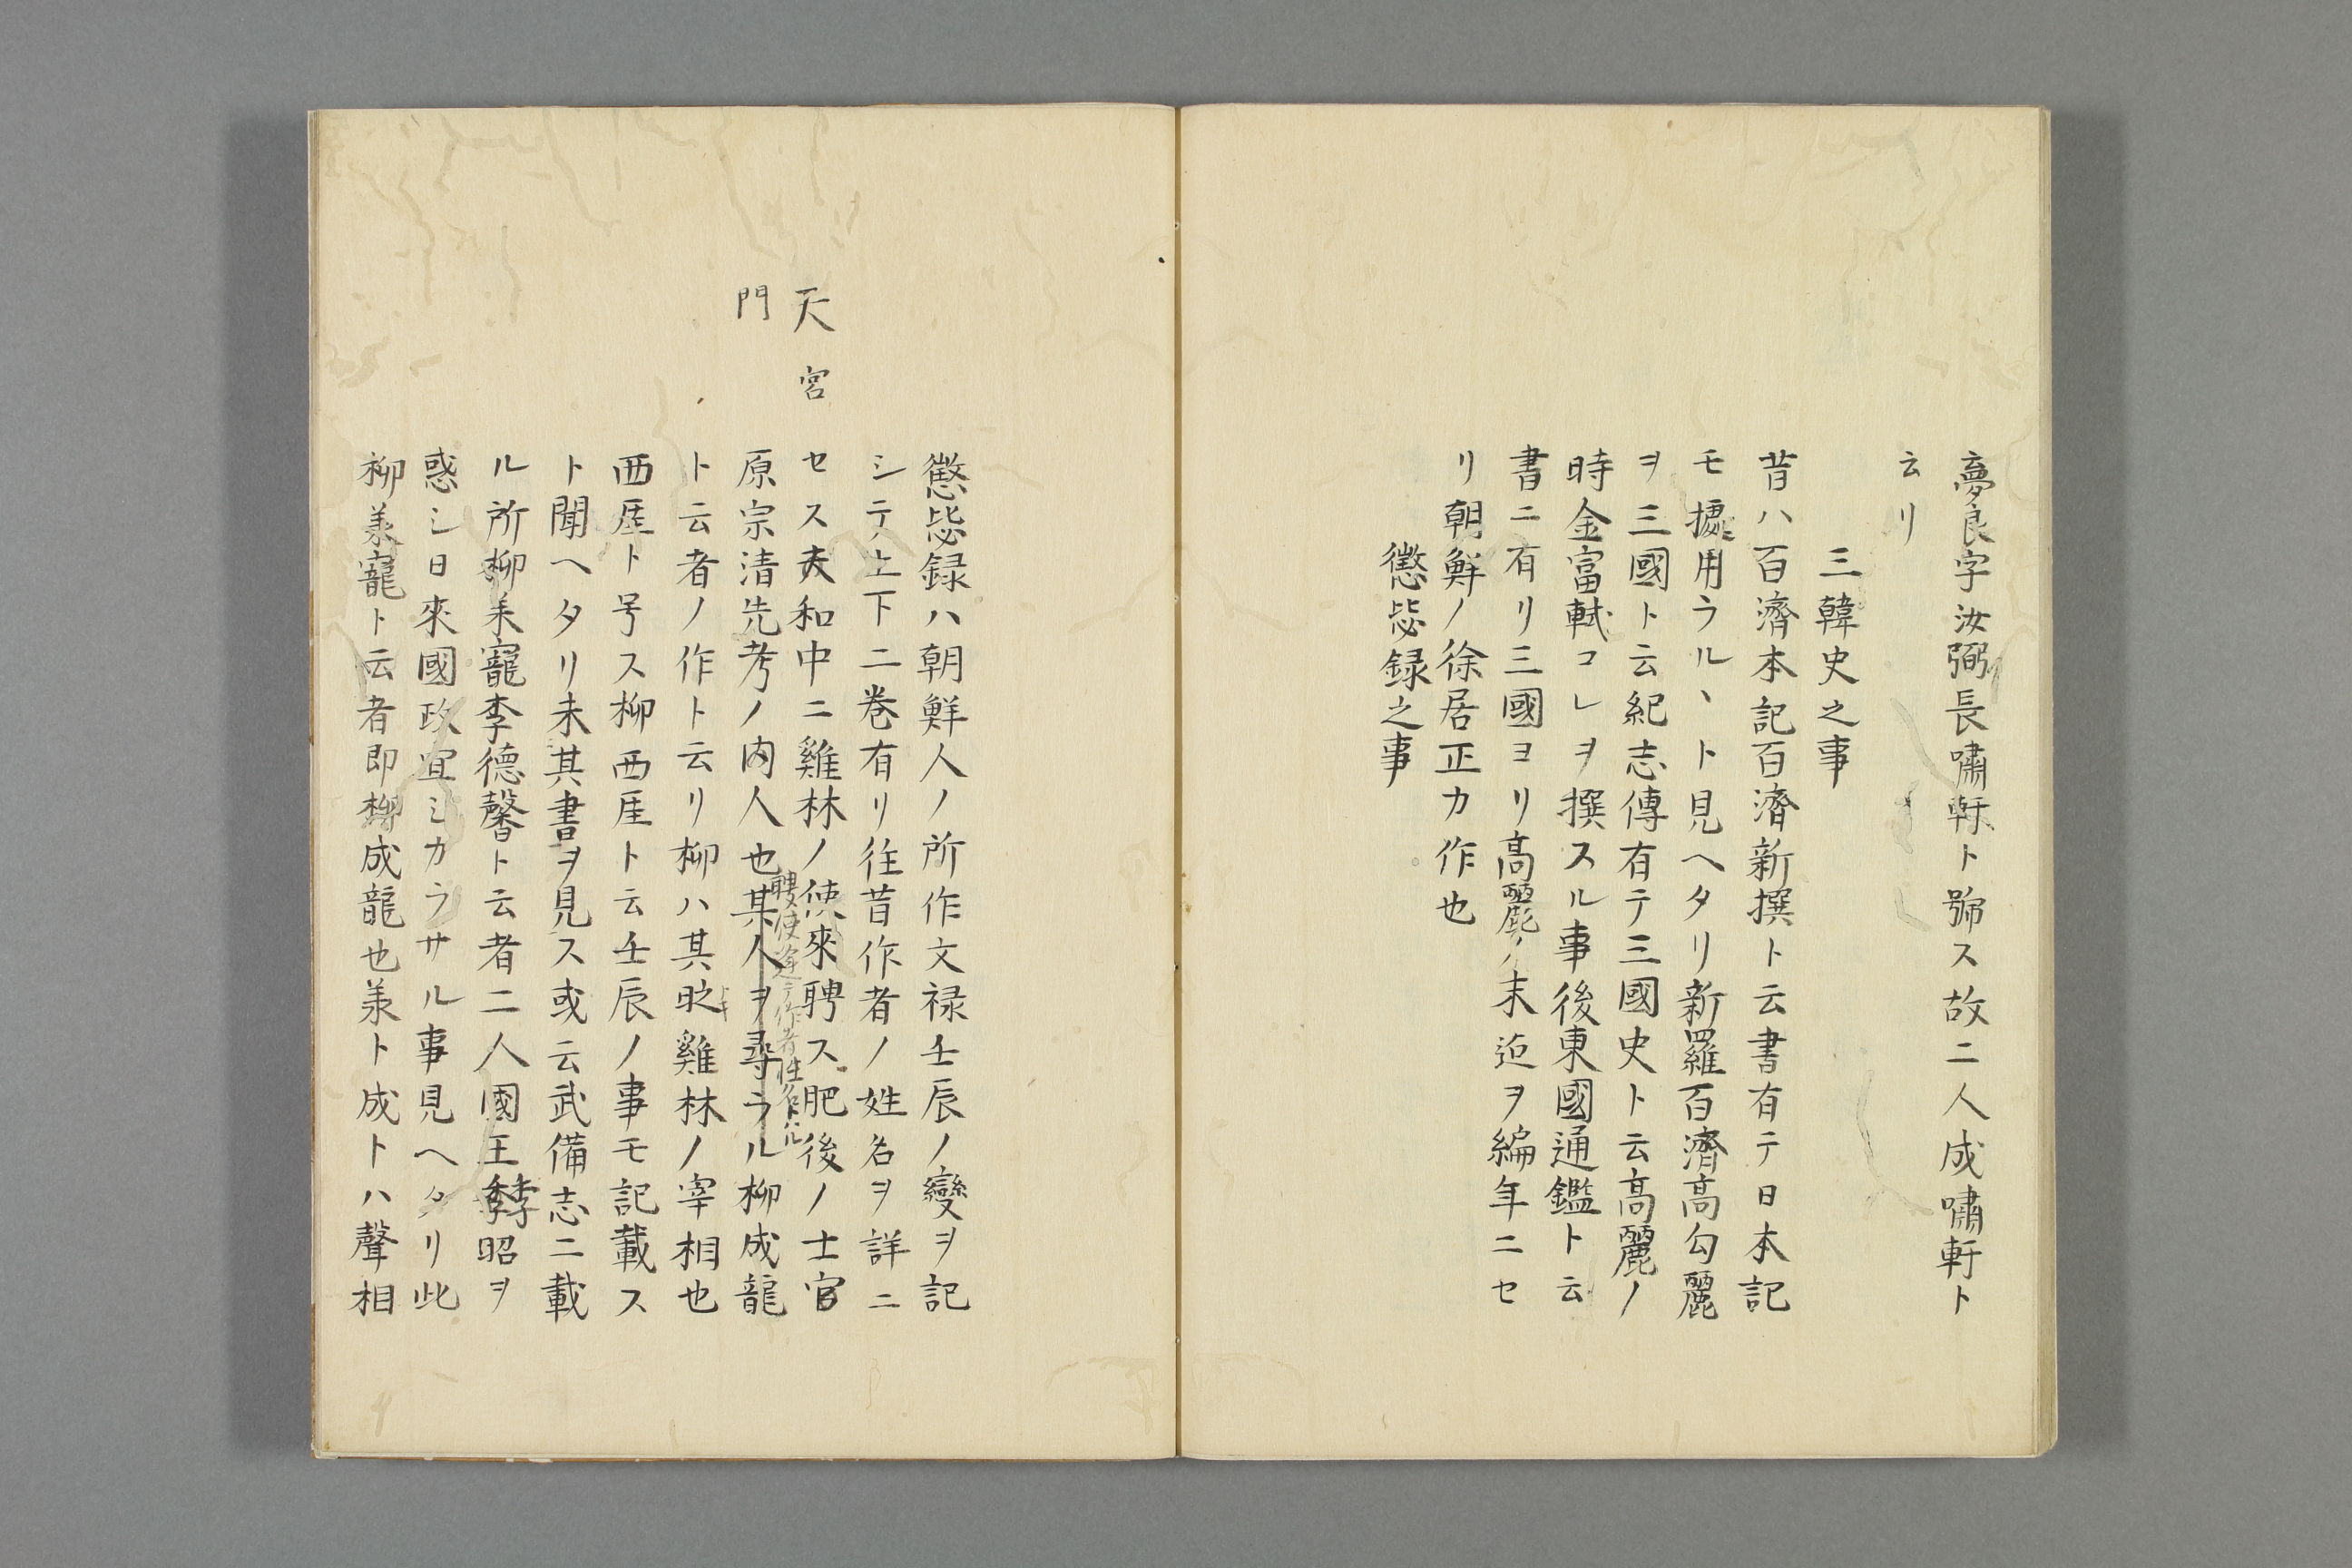 夢良字汝弼長嘯軒ト號ス故ニ人成嘯軒ト
云リ
三韓史之事
昔ハ百濟本記百濟新撰ト云書有テ日本記
モ據用ラルヽト見ヘタリ新羅百濟高勾麗
ヲ三國ト云紀志傳有テ三國史ト云高麗ノ
時金富軾コレヲ撰スル事後東國通鑑ト云
書ニ有リ三國ヨリ高麗ノ末迄ヲ編年ニセ
リ朝鮮ノ徐居正カ作也
懲毖録之事
懲毖録ハ朝鮮人ノ所作文禄壬辰ノ變ヲ記
シテ上下二巻有リ徃昔作者ノ姓名ヲ詳ニ
天宮
セス天和中ニ雞林ノ使來聘ス肥後ノ士官
聘使逢テ作者姓名
門
原宗清先考ノ内人也某人ヲ尋ラル柳成龍
ト云者ノ作ト云リ柳ハ其雞林ノ宰相也
西厓ト号ス柳西厓ト云壬辰ノ事モ記載ス
ト聞ヘタリ未其書ヲ見ス或云武備志ニ載
ル所柳承寵李德馨ト云者二人國王李昭ヲ
惑シ日來國政宜シカラサル事見ヘタリ此
柳羕寵ト云者即柳成龍也羕ト成トハ聲相